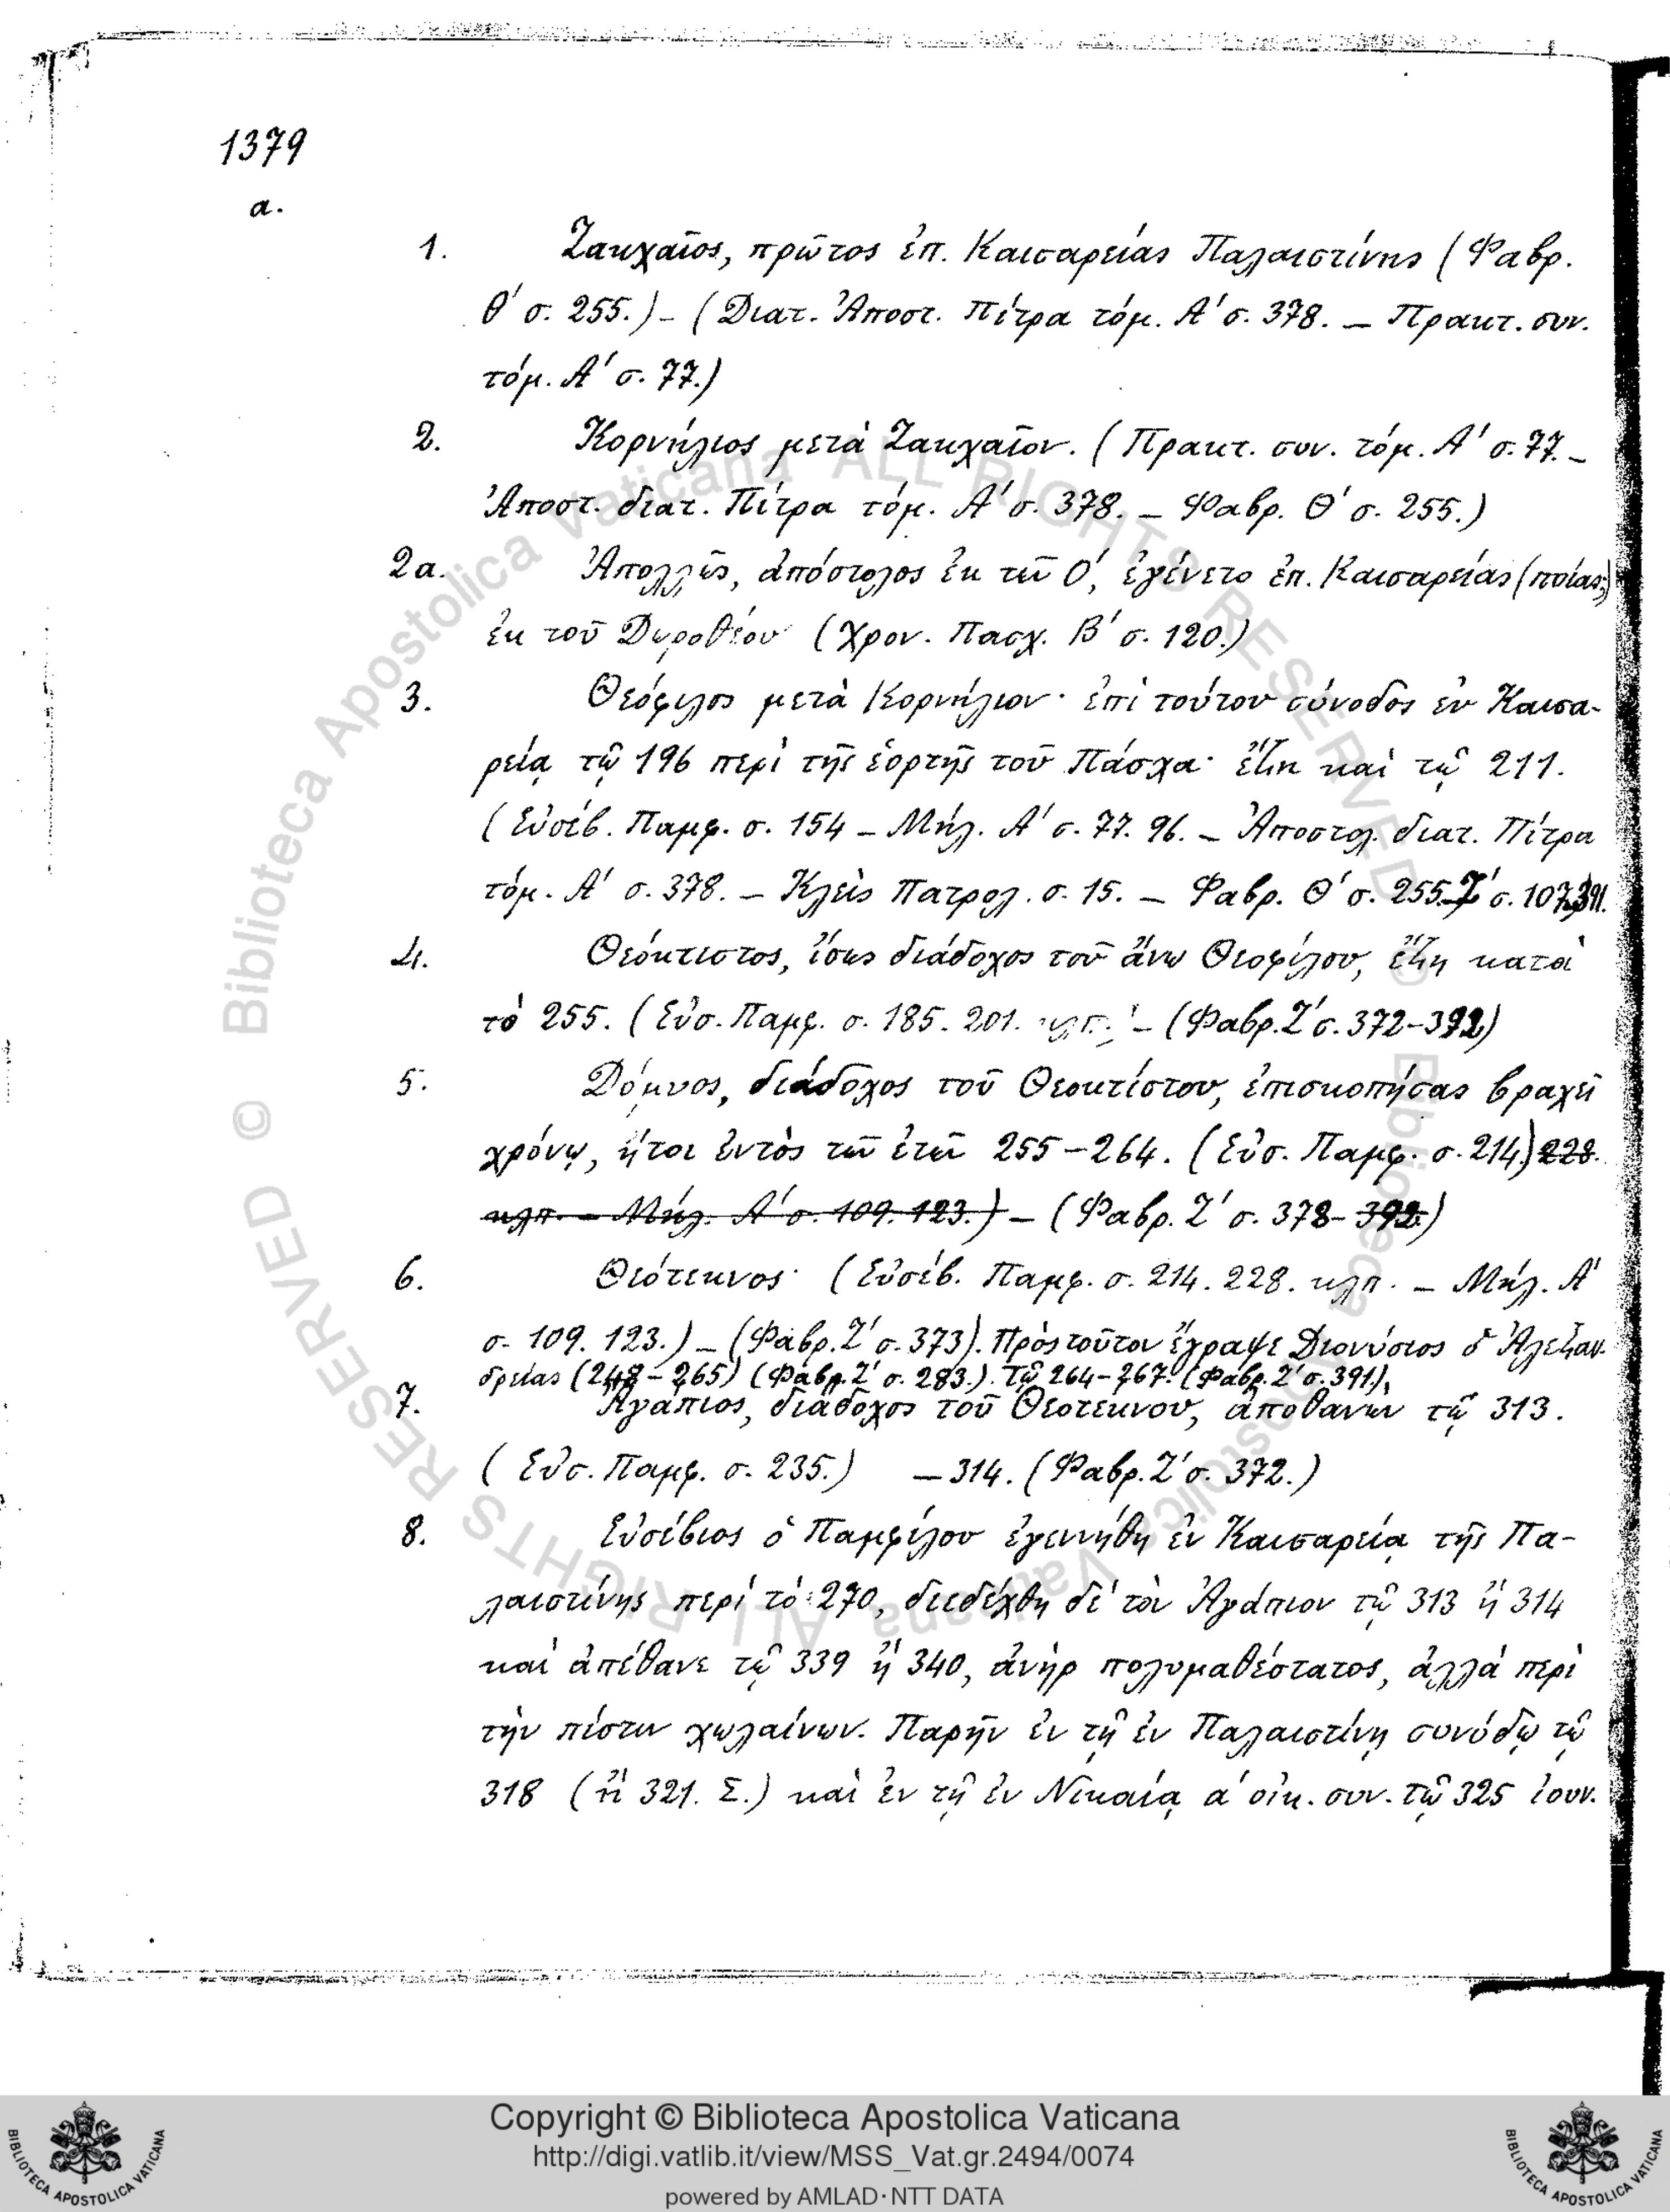 1379
α.
1. Ζακχαῖος, πρῶτος ἐπ. Καισαρείας Παλαιστίνης (Φαβρ.
Θ′ σ. 255.) – (Διατ. Ἀποστ. Πίτρα τόμ. Α′ σ. 378. – Πρακτ. συν.
τόμ. Α′ σ. 77.)
2. Κορνήλιος μετὰ Ζακχαῖον. (Πρακτ. συν. τόμ. Α′ σ. 77. –
Ἀποστ. διατ. Πίτρα τόμ. Α′ σ. 378. – Φαβρ. Θ′ σ. 255.)
2α. Ἀπολλῶς, ἀπόστολος ἐκ τῶν Ο′, ἐγένετο ἐπ. Καισαρείας (ποίας;)
ἐκ τοῦ Δωροθέου (Χρον. Πασχ. Β′ σ. 120.)
3. Θεόφιλος μετὰ Κορνήλιον· ἐπὶ τούτου σύνοδος ἐν Καισα-
ρείᾳ τῷ 196 περὶ τῆς ἑορτῆς τοῦ Πάσχα· ἔζη καὶ τῷ 211.
(Εὐσέβ. Παμφ. σ. 154 – Μήλ. Α′ σ. 77. 96. – Ἀποστολ. διατ. Πίτρα
τόμ. Α′ σ. 378. – Κλεὶς Πατρολ. σ. 15. – Φαβρ. Θ′ σ. 255. Ζ′ σ. 107. 391.
4. Θεόκτιστος, ἴσως διάδοχος τοῦ ἄνω Θεοφίλου, ἔζη κατὰ
τὸ 255. (Εὐσ. Παμφ. σ. 185. 201. κλπ.) – (Φαβρ. Ζ′ σ. 372–392)
5. Δόμνος, διάδοχος τοῦ Θεοκτίστου, ἐπισκοπήσας βραχεῖ
χρόνῳ, ἤτοι ἐντὸς τῶν ἐτῶν 255–264. (Εὐσ. Παμφ. σ. 214.) 228.
κλπ. – Μήλ. Α′ σ. 109. 123.) – (Φαβρ. Ζ′ σ. 378–392.)
6. Θεότεκνος· (Εὐσέβ. Παμφ. σ. 214. 228. κλπ. – Μήλ. Α′
σ. 109. 123.) – (Φαβρ. Ζ′ σ. 373). Πρὸς τοῦτον ἔγραψε Διονύσιος ὁ Ἀλεξαν-
δρείας (248–265) (Φαβρ. Ζ′ σ. 283.). Τῷ 264–267. (Φαβρ. Ζ′ σ. 391).
7. Ἀγάπιος, διάδοχος τοῦ Θεοτέκνου, ἀποθανὼν τῷ 313.
(Εὐσ. Παμφ. σ. 235.) – 314. (Φαβρ. Ζ′ σ. 372.)
8. Εὐσέβιος ὁ Παμφίλου ἐγεννήθη ἐν Καισαρείᾳ τῆς Πα-
λαιστίνης περὶ τὸ 270, διεδέχθη δὲ τὸν Ἀγάπιον τῷ 313 ἢ 314
καὶ ἀπέθανε τῷ 339 ἢ 340, ἀνὴρ πολυμαθέστατος, ἀλλὰ περὶ
τὴν πίστιν χωλαίνων. Παρῆν ἐν τῇ ἐν Παλαιστίνῃ συνόδῳ τῷ
318 (ἢ 321. Σ.) καὶ ἐν τῇ ἐν Νικαίᾳ α′ οἰκ. συν. τῷ 325 ἰουν.
© Biblioteca Apostolica Vaticana ALL RIGHTS RESERVED
© Biblioteca Apostolica Vaticana ALL RIGHTS RESERVED
Copyright © Biblioteca Apostolica Vaticana
http://digi.vatlib.it/view/MSS_Vat.gr.2494/0074
powered by AMLAD·NTT DATA
BIBLIOTECA APOSTOLICA VATICANA
BIBLIOTECA APOSTOLICA VATICANA